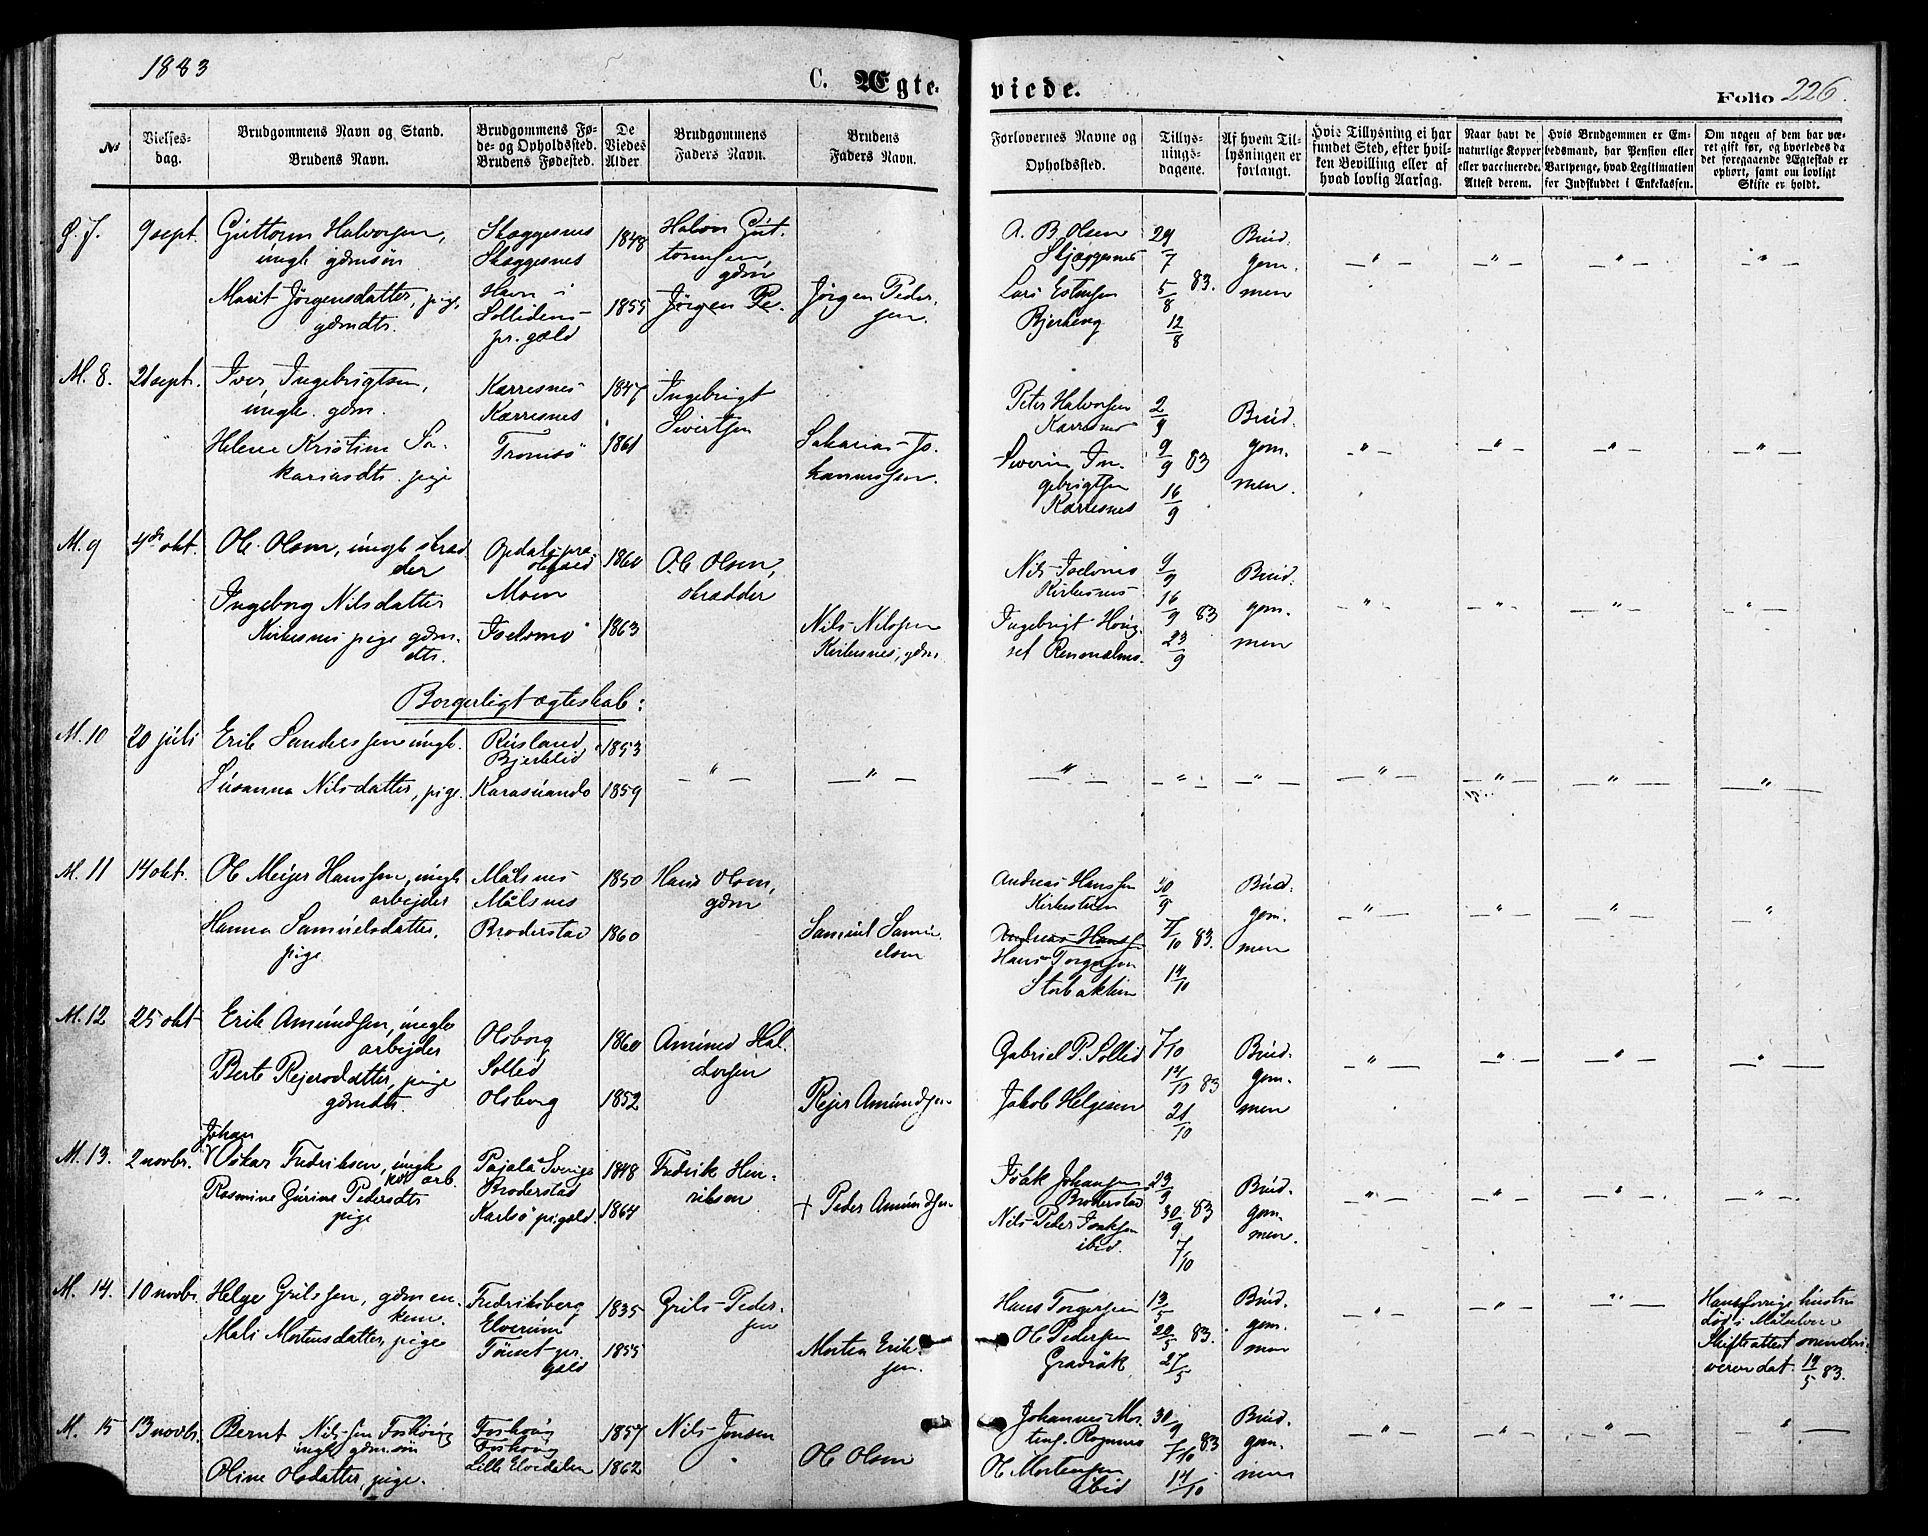 1883
C. Ægteviede.
Folio 226.
No
Vielsesdag.
Brudgommens Navn og Stand.
Brudens Navn.
Brudgommens Føde- og Opholdssted.
Brudens Fødested.
De Viedes Alder.
Brudgommens Faders Navn.
Brudens Faders Navn.
Forlovernes Navne og Opholdssted.
Tillysningsdagene.
Af hvem Tillysningen er forlangt.
Hvis Tillysning ei har fundet Sted, efter hvilken Bevilling eller af hvad lovlig Aarsag.
Naar havt de naturlige Kopper eller vaccinerede. Attest derom.
Hvis Brudgommen er Embedsmand, har Pension eller Vartpenge, hvad Legitimation for Indskuddet i Enkekassen.
Om nogen af dem har været gift før, og hvorledes da det foregaaende Ægteskab er ophørt, samt om lovligt Skifte er holdt.
9 sept.
Guttorm Halvorsen,
ungk. gdmsøn
Marit Jørgensdatter, pige,
gdmdtr.
Skoggesnes
Skoggesnes
Havn i
Sollidens
pr. gæld
1848
1855
Halvor Gut-
tormsen,
gdm
Jørgen Pe-
Jørgen Peder-
sen.
A. B. Olsen
Skjæggesnes
Lars Estensen
Bjerkeng
29/7
5/8 83.
12/8
Brud-
gom-
men
M. 8.
21 sept.
Iver Ingebrigtsen,
ungk. gdm.
Helene Kristine Sa-
kariasdtr. pige
Karresnes
Karresnes
Tromsö
1847
1861
Ingebrigt
Sivertsen
Sakarias Jo-
hannessen.
Peter Halvorsen
Karresnes
Severin In-
gebrigtsen
Karresnes
2/9
9/9 83
16/9
Brud-
gom-
men.
M. 9
4de okt.
Ole Olsen, ungk. skræd-
der
Ingeborg Nilsdatter
Kirkesnes pige gdm.
dtr.
Opdals præ-
stegjæld
Moen
1860
1863
Ole Olsen,
skrædder
Nils Nilssen
Kirkesnes, gdm
Kirkesnes
Ingebrigt
9/9
16/9 83
23/9
Brud-
gom-
men
Borgerligt ægteskab:
M. 10
20 juli
Erik Sanderssen ungk.
Susanna Nilsdatter, pige.
Rusland,
Bjerklid
Karasuando
1853
1859
M. 11
14 okt.
Ole Meijer Hanssen, ungk.
arbejder
Hanna Samuelsdatter,
pige.
Målsnes
Målsnes
Broderstad
1850
1860
Hans Olsen,
gdm
Samuel Samu-
elsen
Andreas Hanssen
Andreas Hanssen
Hans Torgersen
30/9
7/10 83.
14/10
Brud-
gom-
men
M. 12
25 okt
Erik Amundsen, ungk.
arbejder
Berte Rejersdatter, pige
gdmdtr.
Olsborg
Sollid
Olsborg
1860
1852
Amund Hal-
vorsen
Rejer Amundsen
Gabriel P. Sollid
Jakob Helgesen
7/10
14/10 83
21/10
Brud-
gom-
men
M. 13.
2 novbr.
Johan
Oskar Fredriksen, ungk.
arb.
Rasmine Gurine Pedersdtr
pige
Pajala Sverige
Broderstad
Karlsö pr.gæld
1848
1864
Fredrik Hen-
riksen
+ Peder Amundsen
Isak Johansen
Broderstad
Nils Peder Isaksen
ibid.
23/9
30/9 83
7/10
Brud-
gom-
men.
M. 14.
10 novbr.
Helge Grilssen, gdm en-
kem.
Mali Mortensdatter, pige
Fredriksberg
Elverum
Tönset pr.
gæld
1835
1855
Grils Peder-
sen
Morten Erik-
sen.
Hans Torgersen
Ole Pedersen
Gravråk
13/5
20/5 83.
27/5
Brud-
gom-
men
Hans forrige hustru
död i Målselven
Skifteattest
dat. 19/5 83.
M. 15
13 novbr.
Bernt Nilssen Foshoug
ungk. gdmsön
Oline Olsdatter, pige.
Foshoug
Foshoug
Lille Elvedalen
1857
1862
Nils Jensen
Ole Olsen
Johannes Mor-
tens. Rognmo
Ole Mortensen
ibid
30/9
7/10 83
14/10
Brud-
gom-
men